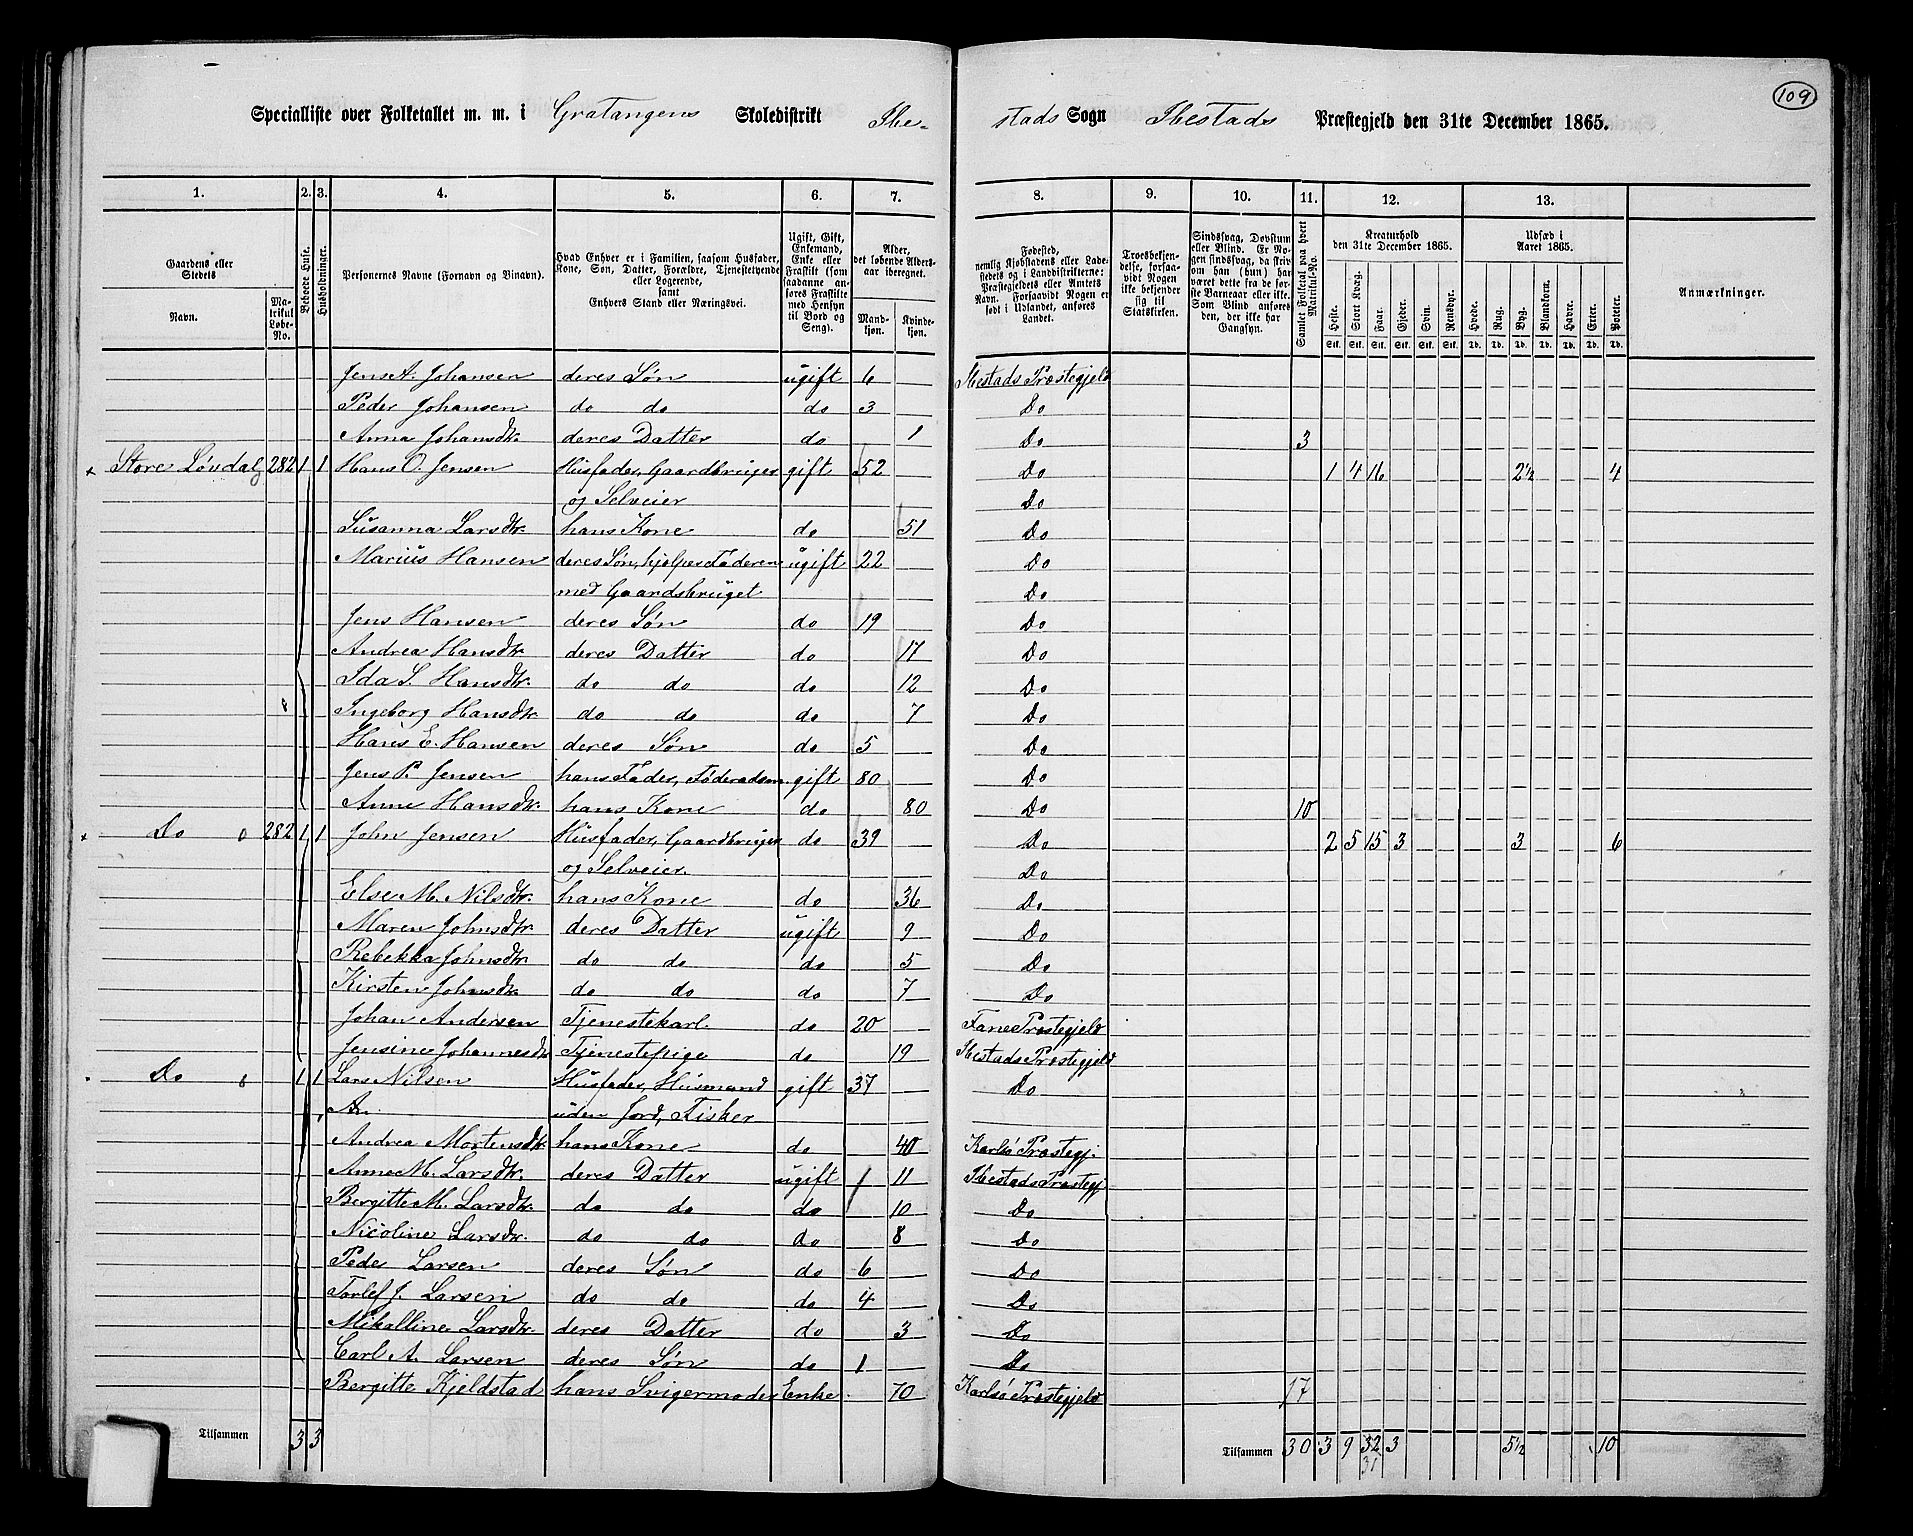 109
Specialliste over Folketallet m. m. i Gratangens Skoledistrikt Ibestads Sogn Ibestads Præstegjeld den 31te December 1865.
1. 2. 3. 4. 5. 6. 7. 8. 9. 10. 11. 12. 13.
Gaardens eller Stedets
Navn.
Matrikul Løbe-No.
Beboede Huse.
Husholdninger.
Personernes Navne (Fornavn og Tilnavn).
Hvad Enhver er i Familien, saasom Husfader, Kone, Søn, Datter, Forældre, Tjenestetyende eller Logerende, samt Enhvers Stand eller Næringsvei.
Ugift, Gift, Enkemand, Enke eller Fraskilt (som saadanne anføres Fraskilte med Hensyn til Bord og Seng).
Alder, det løbende Aldersaar iberegnet.
Mandkjøn. Kvindekjøn.
Fødested, nemlig Kjøbstadens eller Ladestedets og i Landdistrikterne: Præstegjeldets eller Amtets Navn. Forsaavidt Nogen er født i Udlandet, anføres Landet.
Troesbekjendelse, forsaavidt Nogen ikke bekjender sig til Statskirken.
Sindssvag, Døvstum eller Blind. Er Nogen sindssvag, da skrives om han (hun) har været dette fra de første Barneaar eller ikke. Som Blind anføres den, der ikke har Gangsyn.
Samlet Folketal paa hvert Matrikul-No.
Kreaturhold den 31te December 1865.
Heste. Stort Kvæg. Faar. Gjeder. Svin. Rensdyr.
Stk. Stk. Stk. Stk. Stk. Stk.
Udsæd i Aaret 1865.
Hvede. Rug. Byg. Blandkorn. Havre. Erter. Poteter.
Td. Td. Td. Td. Td. Td. Td.
Anmærkninger.
Jens A. Johansen deres Søn ugift 6 Ibestads Præstegjeld
Peder Johansen do do do 3 Do
Anna Johansdtr. deres Datter do 1 Do 3
Store Løvdal 282 1 1 Hans O. Jensen Husfader, Gaardbruger gift 52 Do 1 4 16 2½ 4
og Selveier Do
Susanna Larsdtr. hans Kone do 51 Do
Marius Hansen deres Søn, hjelper Faderen ugift 22 Do
med Gaardsbruget Do
Jens Hansen deres Søn do 19 Do
Andrea Hansdtr. deres Datter do 17 Do
Ida S. Hansdtr. do do do 12 Do
Ingeborg Hansdtr. do do do 7 Do
Hans E. Hansen deres Søn do 5 Do
Jens P. Jensen hans Fader, Føderadsm. gift 80 Do
Anne Hansdtr. hans Kone do 80 Do 10
Do 282 1 1 John Jensen Husfader, Gaardbruger do 39 Do 2 5 15 3 3 6
og Selveier. Do
Else M. Nilsdtr. hans Kone do 36 Do
Maren Johnsdtr. deres Datter ugift 9 Do
Rebekka Johnsdtr. do do do 5 Do
Kirsten Johnsdtr. do do do 7 Do
Johan Andersen Tjenestekarl. do 20 Præstegjeld
Jensine Johannesdtr. Tjenestepige do 19 Ibestads Præstegjeld
Do 1 1 Lars Nilsen Husfader, Husmand gift 37 Do
An. uden Jord, Fisker
Andrea Mortensdtr. hans Kone do 40 Karlsø Præstegj.
Anne M. Larsdtr. deres Datter ugift 11 Ibestads Præstegj
Bergitte M. Larsdtr. do do do 10 Do
Nicoline Larsdtr. do do do 8 Do
Peder Larsen deres Søn do 6 Do
Torlef J. Larsen do do do 4 Do
Mikalline Larsdtr. deres Datter do 3 Do
Carl A. Larsen deres Søn do 1 Do
Bergitte Kjeldstad hans Svigermoder Enke 70 Karlsø Præstegjeld 17
Tilsammen 3 3 Tilsammen 30 3 9 32 3 5½ 10
31